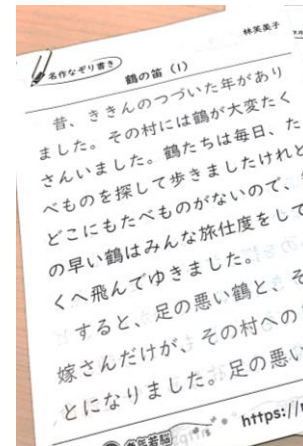 林芙美子
名作なぞり書き
鶴の笛（1）
昔、ききんのつづいた年があり
ました。その村には鶴が大変たく
さんいました。鶴たちは毎日、た
べものを探して歩きましたけれど
どこにもたべものがないので、
の早い鶴はみんな旅仕度をして
くへ飛んでゆきました。
すると、足の悪い鶴と、そ
嫁さんだけが、その村への
とになりました。足の悪い
https://